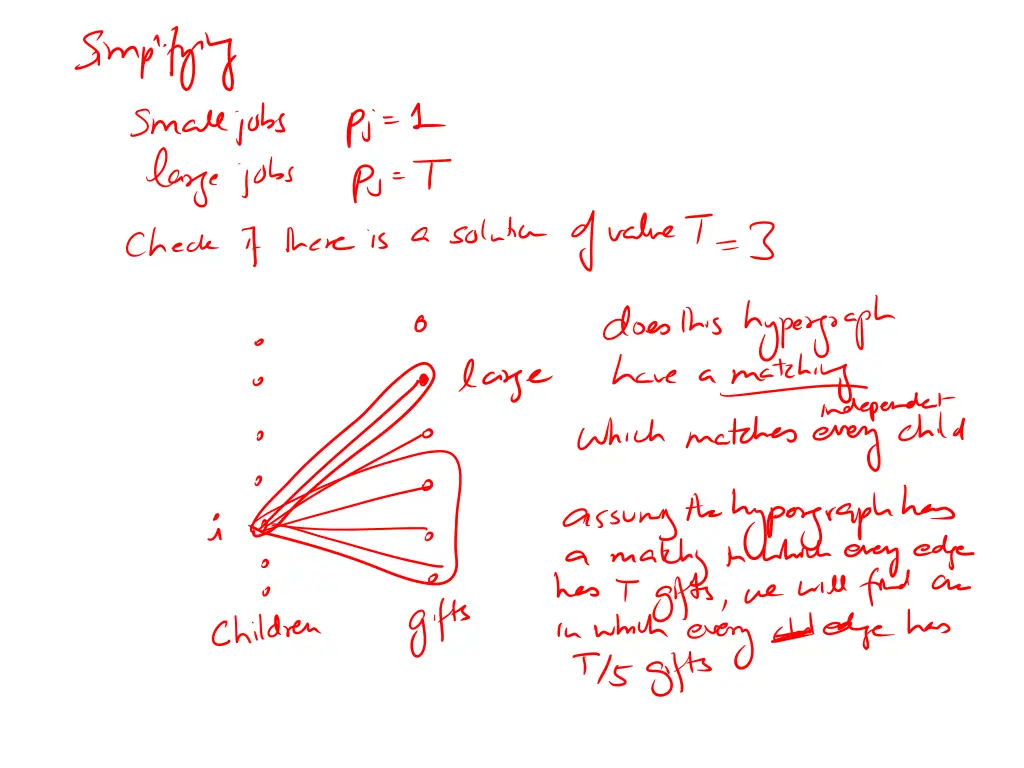 Simplifying
Small jobs pj = 1
large jobs pj = T
Check if there is a solution of value T = 3
does this hypergraph
large have a matching
independent
which matches every child
i
assuming the hypergraph has
a matching in which every edge
has T gifts, we will find one
Children gifts in which every edge has
T/5 gifts